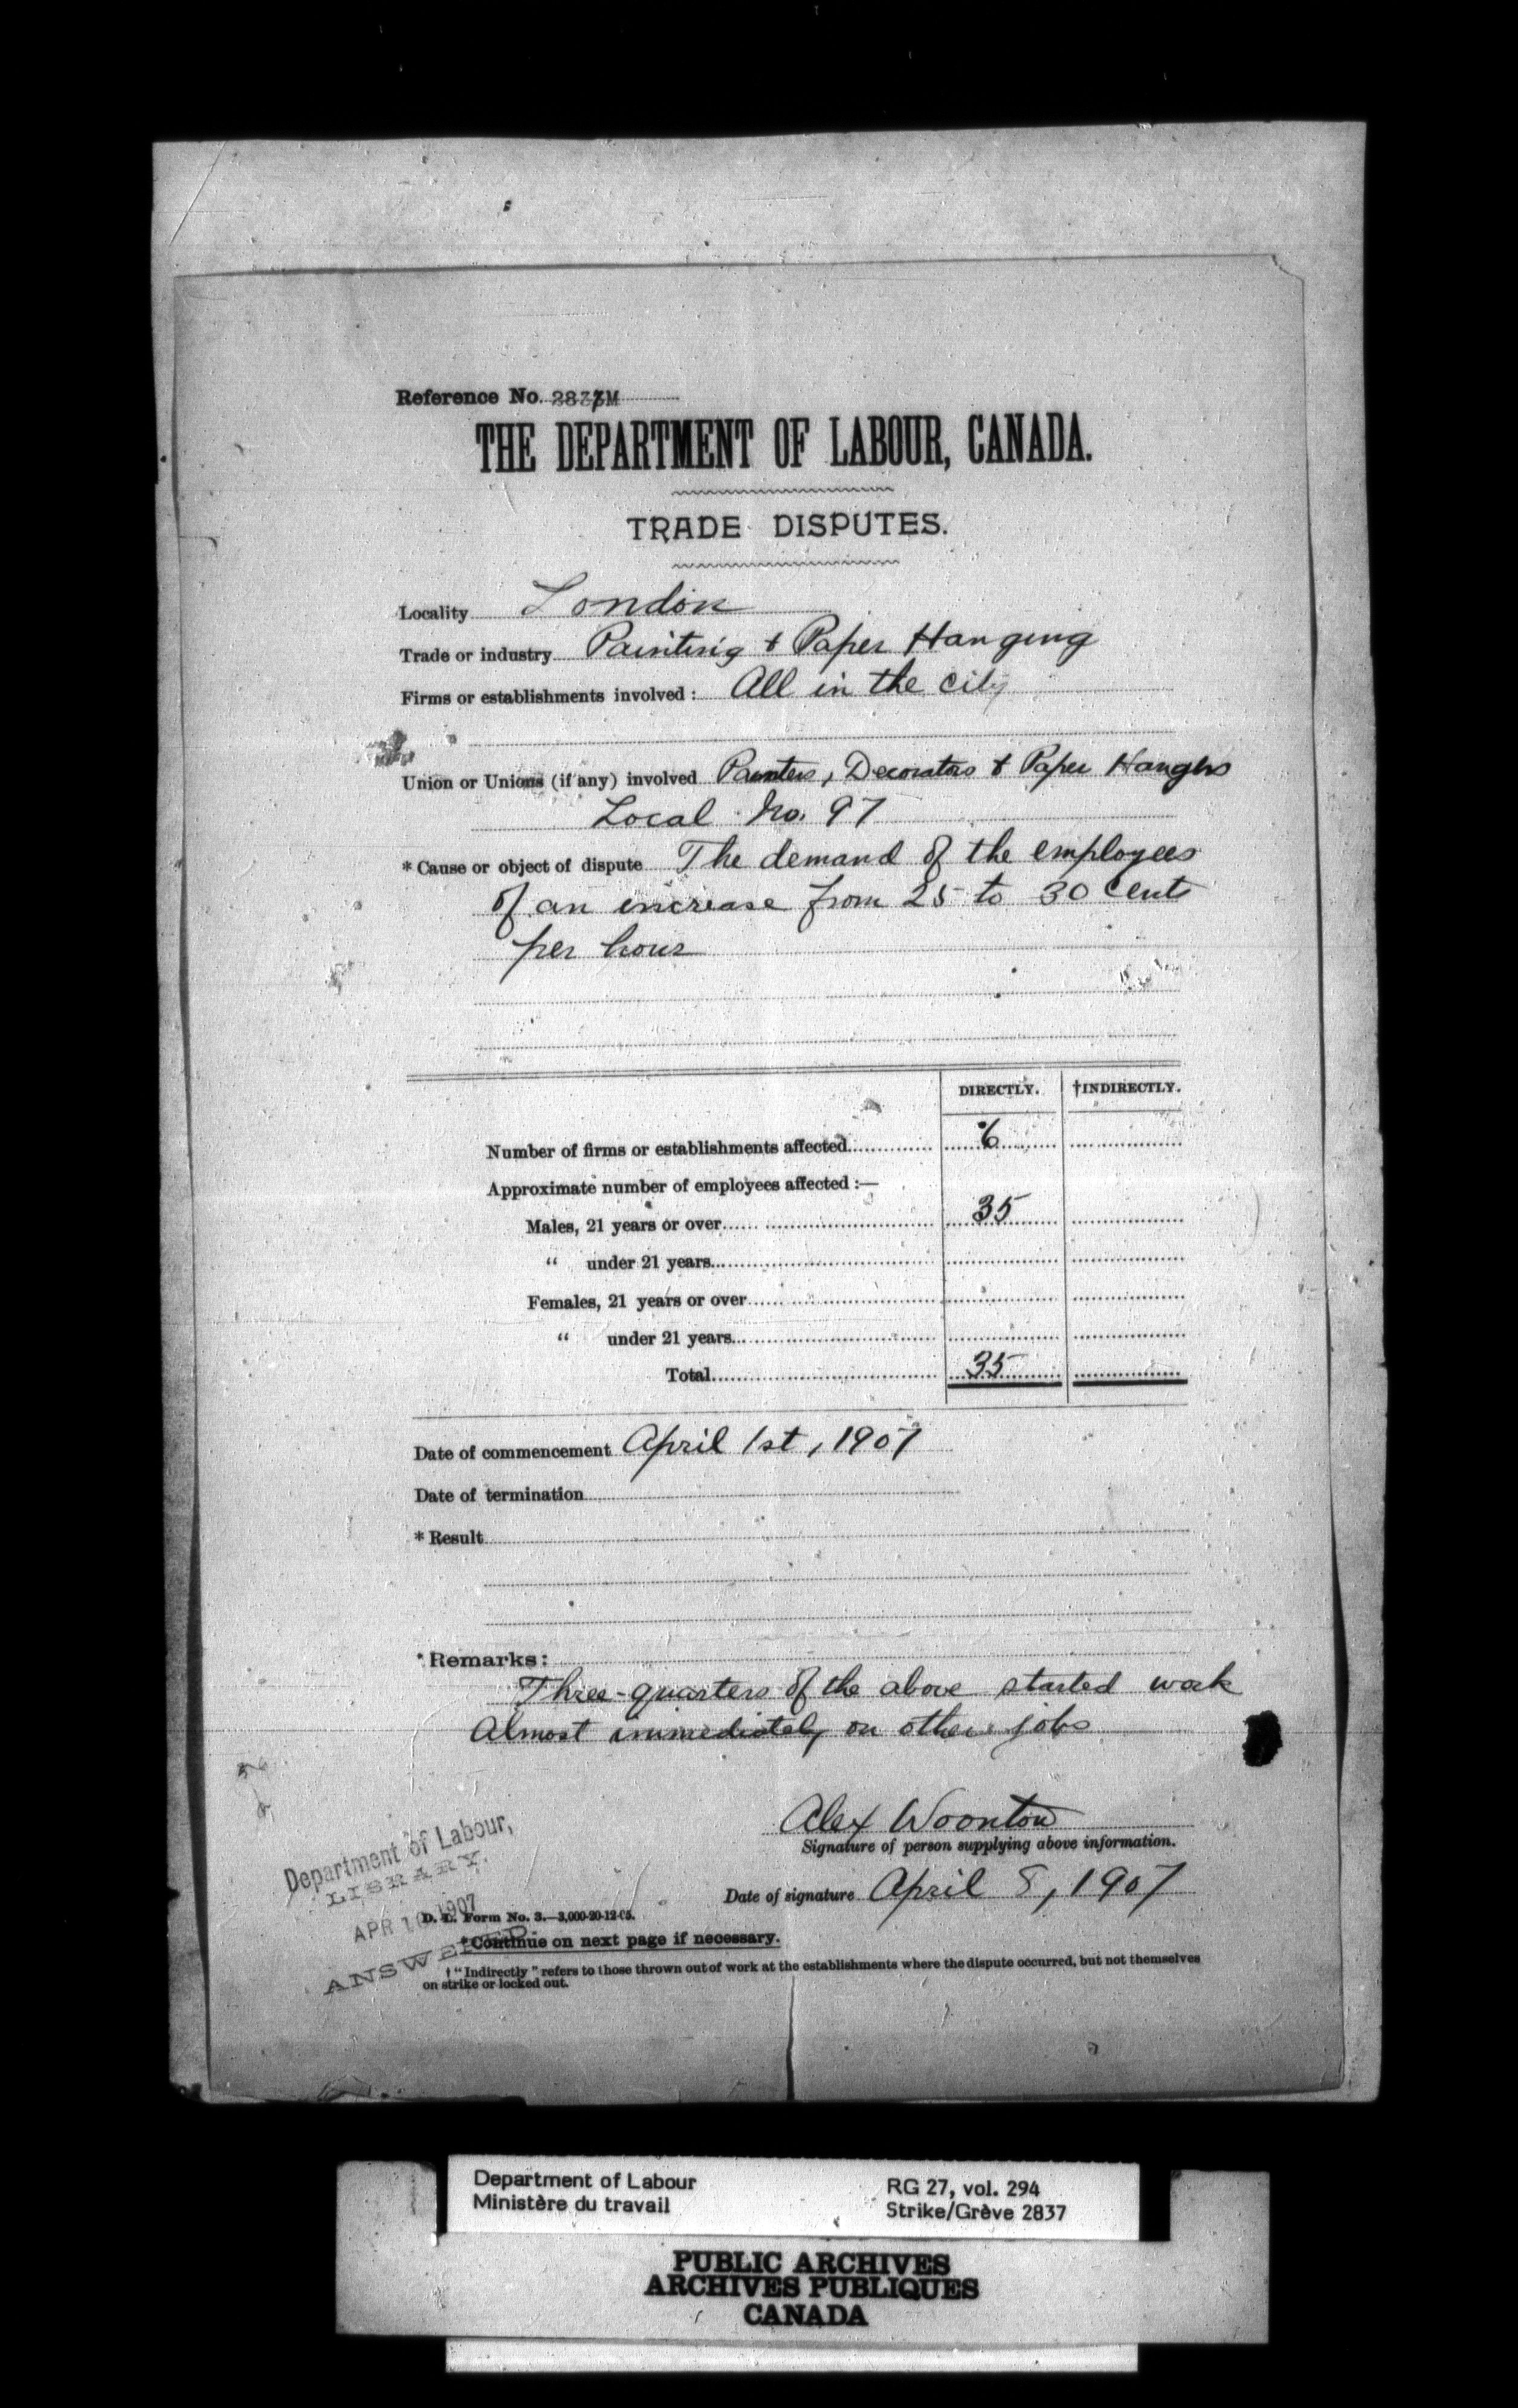 Reference No. 2837M
THE DEPARTMENT OF LABOUR, CANADA.
TRADE DISPUTES.
Locality London
Trade or industry Painting & Paper Hanging
Firms or establishments involved : All in the city
Union or Unions (if any) involved Painters, Decorators & Paper Hangers
Local No. 97
* Cause or object of dispute The demand of the employees
of an increase from 25 to 30 cents
per hour
DIRECTLY. †INDIRECTLY.
Number of firms or establishments affected 6
Approximate number of employees affected :—
Males, 21 years or over 35
“ under 21 years
Females, 21 years or over
“ under 21 years
Total 35
Date of commencement April 1st, 1907
Date of termination
* Result
* Remarks :
Three-quarters of the above started work
almost immediately on other jobs
Alex Woonton
Signature of person supplying above information.
Date of signature April 8, 1907
Department of Labour,
LIBRARY.
APR 10 1907
ANSWERED.
D. L. Form No. 3.—3,000-20-12-05.
*Continue on next page if necessary.
† “Indirectly” refers to those thrown out of work at the establishments where the dispute occurred, but not themselves
on strike or locked out.
Department of Labour
Ministère du travail
RG 27, vol. 294
Strike/Grève 2837
PUBLIC ARCHIVES
ARCHIVES PUBLIQUES
CANADA